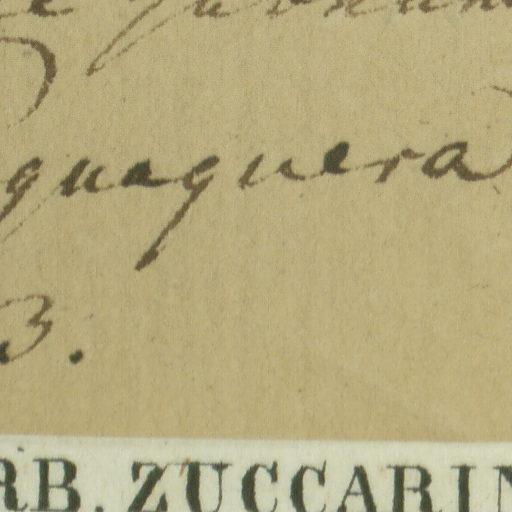 guaquera
3.
RB. ZUCCARIN